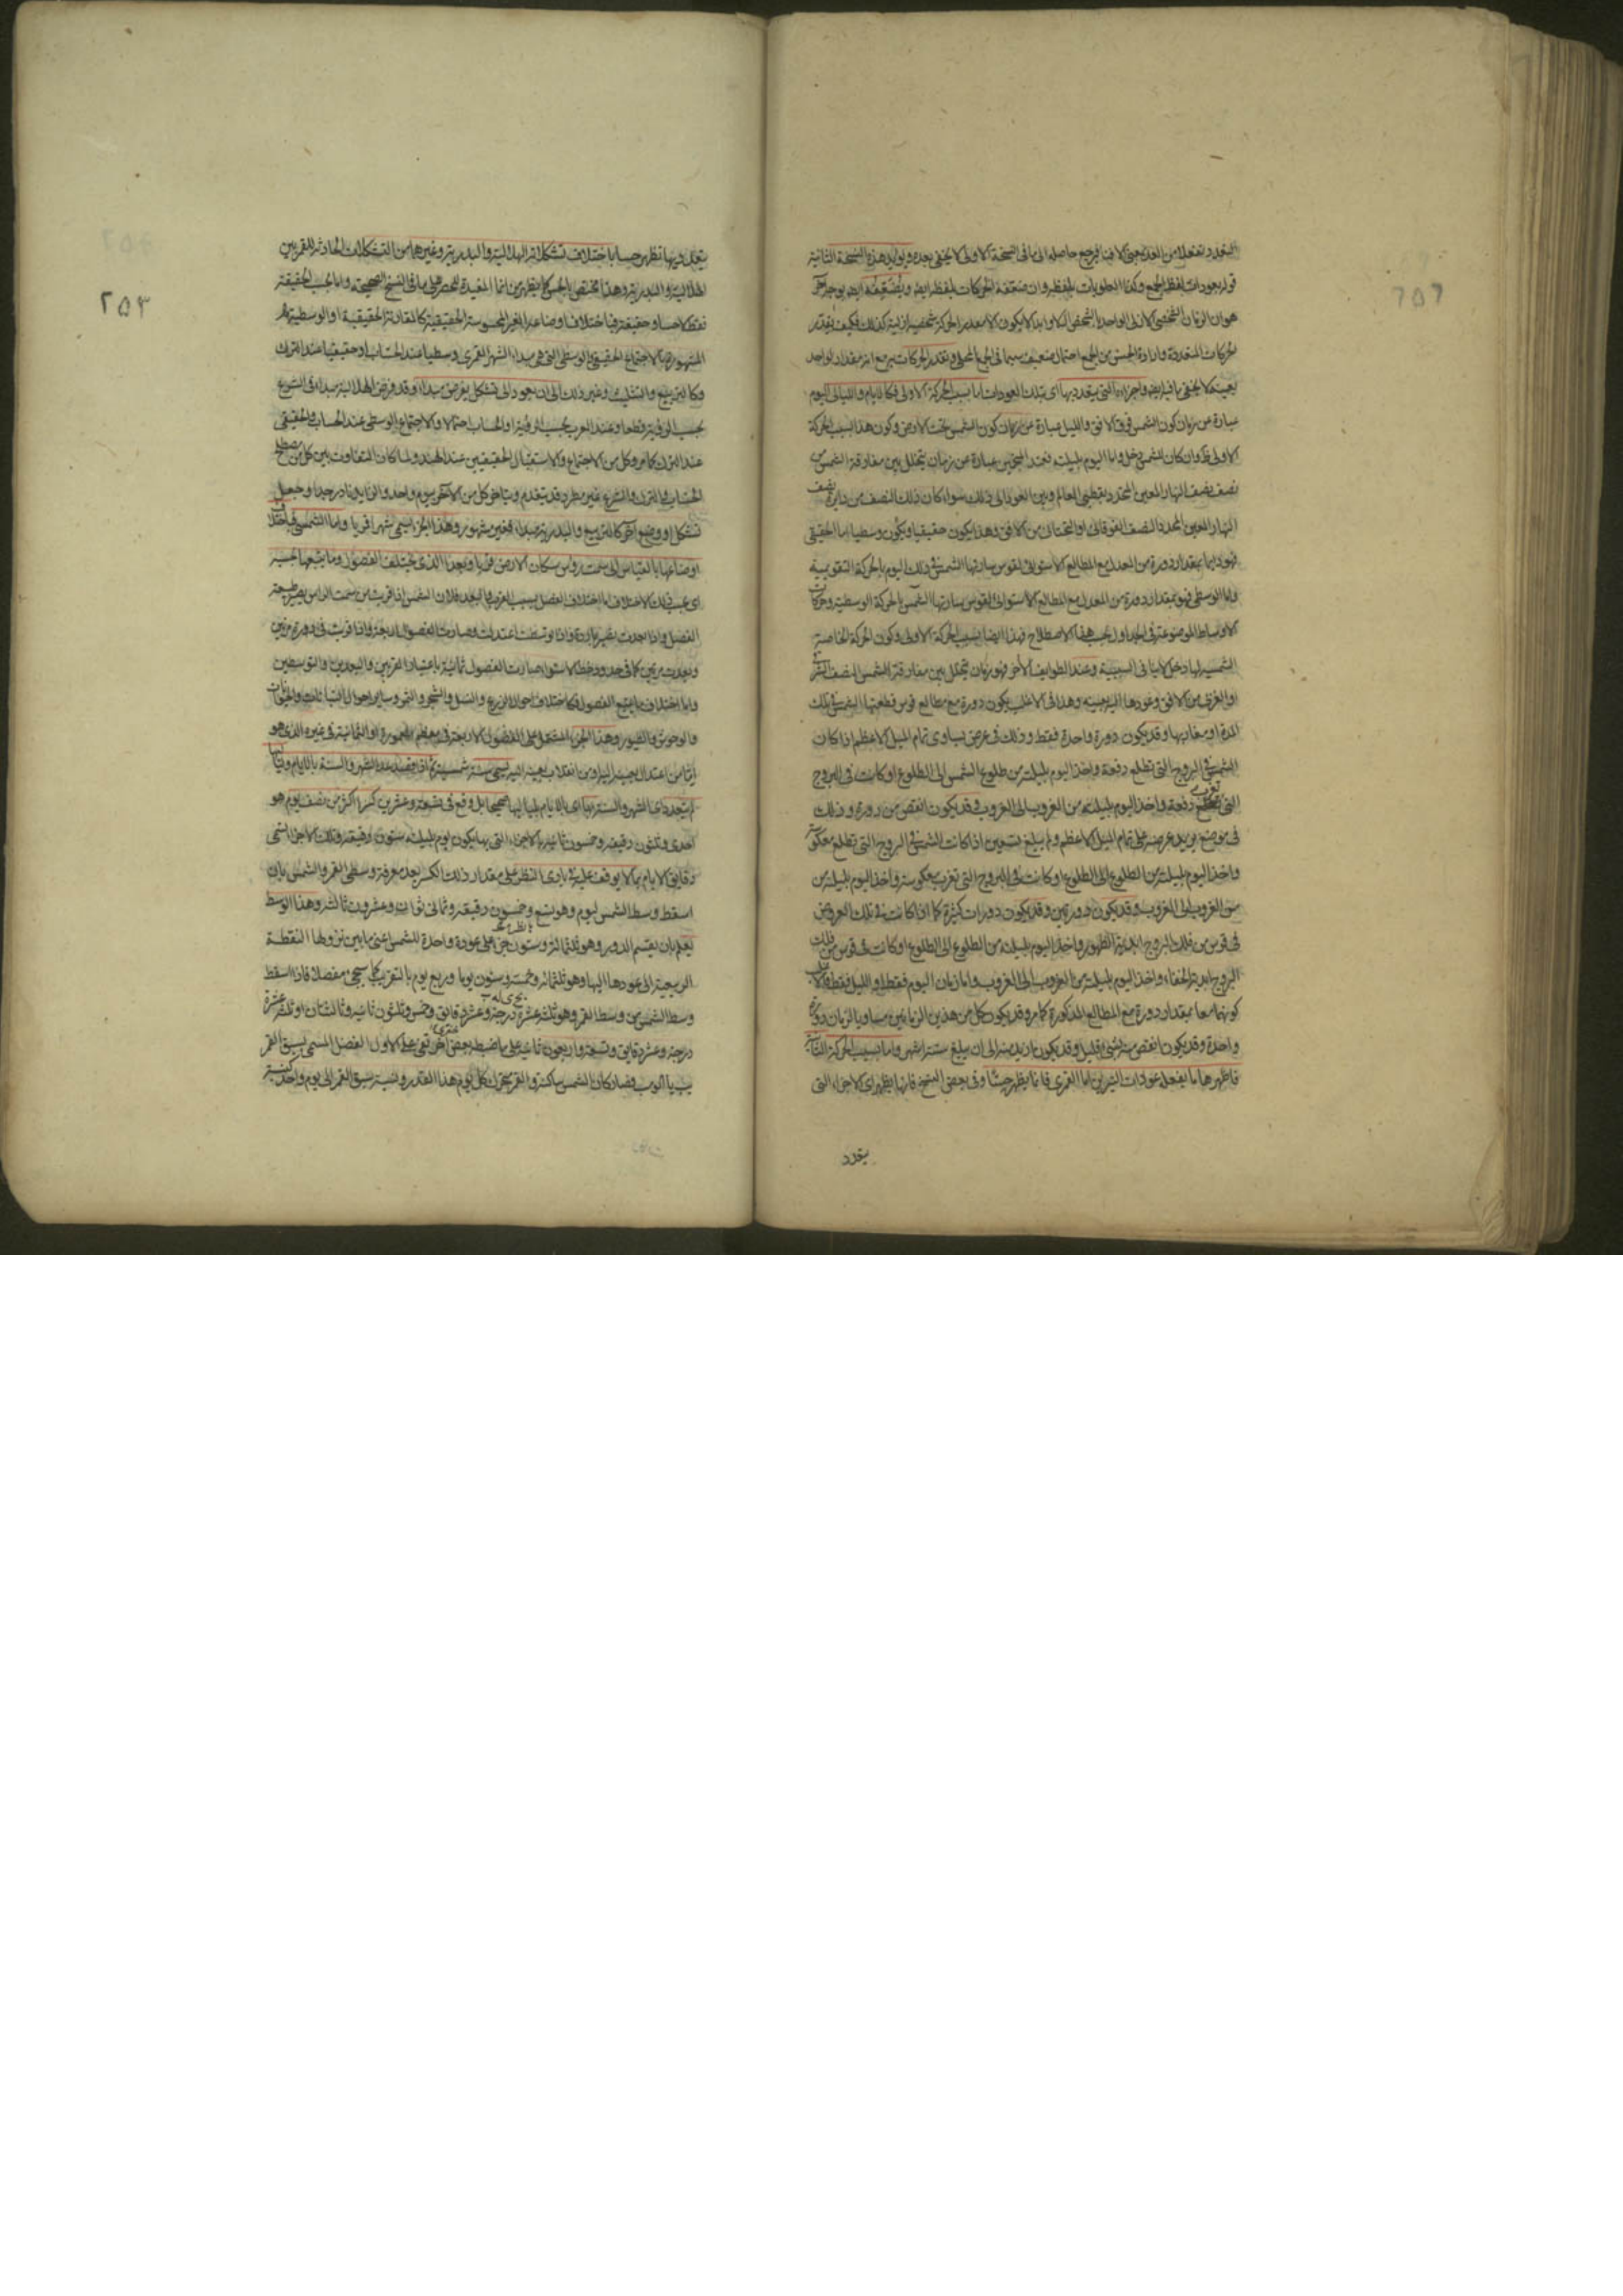 قوله بعودات لفظ الجمع وكذا العلويات بلفظه وان ضعفه الحركات بلفظه ايضا
هو ان الزمان الشخصي الازلي الواحد بالشخص
الحركات المتعددة وارادة الجنس من الجمع احتمال ضعيف سيما في الجمع المحلى وتقدير الحركات يرجع
بعينه كما لا يخفى واجزاءه التي يتعدد بها اى بتلك العودات اما بسبب الحركة الاولى فكالايام والليالى اليوم
عبارة عن زمان كون الشمس فوق الافق والليل عبارة عن زمان كون الشمس تحت الارض وكون هذا بسبب الحركة
الاولى ظ وان كان للشمس دخل واما اليوم بليلته فعند المنجمين عبارة عن زمان يتخلل بين مفارقة الشمس من
نصف نصف النهار المعين المحدد بقطبي العالم وبين العود الى ذلك سواء كان ذلك النصف من دايرة نصف
النهار المعين المحدد النصف الفوقانى او التحتانى من الافق وهذا يكون حقيقيا ويكون وسطيا اما الحقيقى
فهو دايما بمقدار دورة من المعدل مع المطالع الاستوائى لقوس سارتها الشمس فى ذلك اليوم بالحركة التقويمية
واما الوسطى فهو بمقدار دورة من المعدل مع المطالع الاستوائى لقوس سارتها الشمس بالحركة الوسطية وحركات
الاوساط الموضوعة فى الجداول بحسب هذا الاصطلاح فهذا ايضا بسبب الحركة الاولى وكون الحركة الخاصة
الشمسية لها دخل لا ينافى السببية وعند الطوايف الاخر فهو زمان يتخلل بين مفارقة الشمس لنصف الشرقى
او الغربى من الافق وعودها اليه بعينه وهذا فى الاغلب يكون دورة مع مطالع قوس قطعتها الشمس فى تلك
المدة او مغاربها وقد يكون دورة واحدة فقط وذلك فى عرض يساوى تمام الميل الاعظم اذا كان
الشمس فى البروج التى تطلع دفعة واخذ اليوم بليلته من طلوع الشمس الى الطلوع او كانت فى البروج
التى تغرب دفعة واخذ اليوم بليلته من الغروب الى الغروب وقد يكون انقص من دورة وذلك
فى موضع يزيد عرضه على تمام الميل الاعظم ولم يبلغ تسعين اذا كانت الشمس فى البروج التى تطلع معكوسة
واخذ اليوم بليلته من الطلوع الى الطلوع او كانت فى البروج التى تغرب معكوسة واخذ اليوم بليلته من
من الغروب الى الغروب وقد يكون دورتين وقد يكون دورات كثيرة كما اذا كانت فى تلك العروض
فى قوس من فلك البروج ابدية الظهور واخذ اليوم بليلته من الطلوع الى الطلوع او كانت فى قوس من فلك
البروج ابدية الخفاء واخذ اليوم بليلته من الغروب الى الغروب واما زمان اليوم فقط او الليل فقط
كونهما معا بمقدار دورة مع المطالع المذكورة كما مر وقد يكون كل من هذين الزمانين مساويا لزمان دورة
واحدة وقد يكون انقص منه بشئ قليل وقد يكون ازيد منه الى ان يبلغ ستة اشهر واما بسبب الحركة الثانية
فاظهرها ما يفعله عودات النيرين اما القمرى فانما يظهر حسا وفى بعض النسخ فانها يظهر اى الاجزاء التى
يتعدد
٢٥٣
يتعدد بها تظهر حسا باختلاف تشكلاته الهلالية والبدرية وغيرهما من التشكلات الحادثة للقمر بين
الهلالية والبدرية وهذا مختص بالحس كما يظهر من انما المفيدة للحصر على ما فى النسخ الصحيحة واما بحسب الحقيقة
فقط لا حسا وحقيقة فباختلاف اوضاعه الغير المحسوسة الحقيقية كالمقارنة الحقيقية او الوسطية
المشهورة بالاجتماع الحقيقى والوسطى التى هى مبداء الشهر القمرى وسطيا عند الحساب او حقيقيا عند الترك
وكالتربيع والتثليث وغير ذلك الى ان يعود الى تشكل يفرض مبداء وقد فرض الهلالية مبداء فى الشرع
بحسب الرؤية قطعا وعند العرب بحسب الرؤية او الحساب احتمالا والاجتماع الوسطى عند الحساب والحقيقى
عند الترك كما مر وكل من الاجتماع والاستقبال الحقيقيين عند الهند ولما كان التفاوت بين كل من مصطلح
الحساب والترك والشرع غير مطرد قد يتقدم ويتاخر كل من الاخر بيوم واحد والزايد نادر جدا وجعل
تشكل او وضع اخر كالتربيع والبدرية مبداء فغير مشهور وهذا الجزء يسمى شهرا قمريا واما الشمسى فباختلاف
اوضاعها بالقياس الى سمت رؤس سكان الارض قربا وبعدا الذى يختلف الفصول وما يتبعها بحسبه
اى بحسب ذلك الاختلاف اما اختلاف الفصل بسبب القرب والبعد فلان الشمس اذا قربت من سمت الراس يصير طبيعة
الفصل واذا بعدت يصير باردة واذا توسطت اعتدلت وصارت الفصول اربعة واذا قربت فى دورة مرتين
وبعدت مرتين كما فى حدود خط الاستواء صارت الفصول ثمانية باعتبار القربين والبعدين والتوسطين
واما اختلاف ما يتبع الفصول فكاختلاف احوال الزرع والنسل والشجر والثمر وساير احوال النباتات والحيوانات
والوحوش والطيور وهذا الجزء المشتمل على الفصول الاربعة فى معظم المعمورة او الثمانية فى غيره الذى هو
اما من اعتدال بعينه اليه او من انقلاب بعينه اليه يسمى سنة شمسية ثم اذا قصد عد الشهر والسنة بالايام ولياليها
لم يتحدد اى الشهر والسنة بها اى بالايام بلياليها صحيحا بل وقع فى تسعة وعشرين كسرا اكثر من نصف يوم هو
احدى وثلثون دقيقة وخمسون ثانية بالاجزاء التى بها يكون يوم بليلته ستون دقيقة وتلك الاجزاء تسمى
دقايق الايام مما لا يوقف عليه فى بادى النظر على مقدار ذلك الكسر بعد معرفة وسطى القمر والشمس بان
اسقط وسط الشمس ليوم وهو تسع وخمسون دقيقة وثمانى ثوان وعشرون ثالثة وهذا الوسط
يعلم بان يقسم الدور وهو ثلثمائة وستون جزءا على عودة واحدة للشمس اعنى ما بين نزولها النقطة
الربيعية الى عودها اليها وهو ثلثمائة وخمسة وستون يوما وربع يوم بالتقريب كما سيجئ مفصلا فاذا اسقط
وسط الشمس من وسط القمر وهو ثلث عشرة درجة وعشر دقايق وخمس وثلثون ثانية وثالثتان او ثلث عشرة
درجة وعشر دقايق وتسعة واربعون ثانية على ما ضبطه بعض اخر بقى على الاول الفضل المسمى بسبق القمر
فصار كان الشمس ساكنة والقمر يتحرك كل يوم هذا القدر ونسبة سبق القمر الى يوم واحد كنسبة